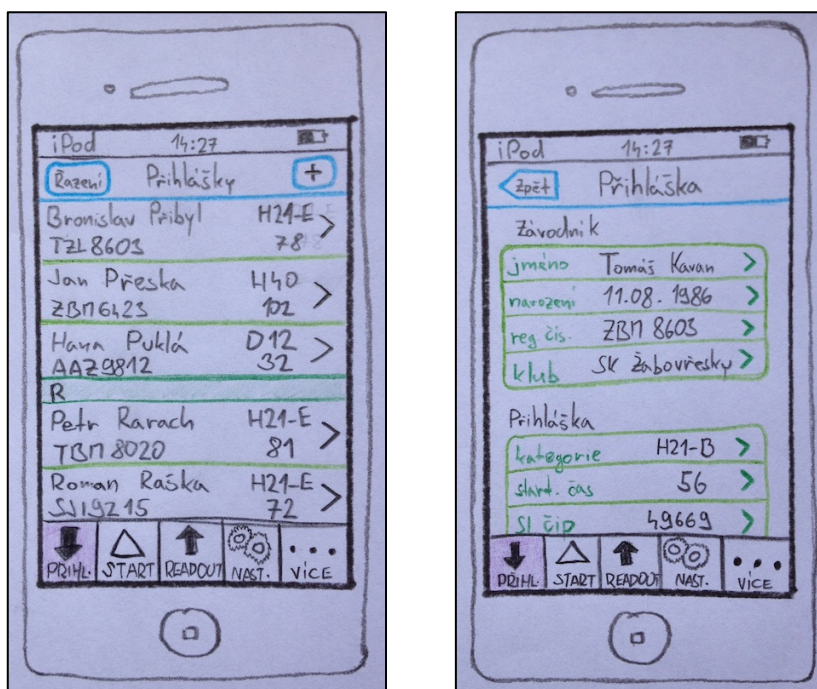 iPod 14:27
Řazení Přihlášky +
Bronislav Přibyl H21-E
TZL8603 78
Jan Přeska H40
ZBM6423 102
Hana Puklá D12
AAZ9812 32
R
Petr Rarach H21-E
TBM8020 81
Roman Raška H21-E
SJI9215 72
PŘIHL. START READOUT NAST. VÍCE
iPod 14:27
Zpět Přihláška
Závodník
jméno Tomáš Kavan
narození 11.08.1986
reg. čís. ZBM 8603
klub SK Žabovřesky
Přihláška
kategorie H21-B
start. čas 56
SI čip 49669
PŘIHL. START READOUT NAST. VÍCE